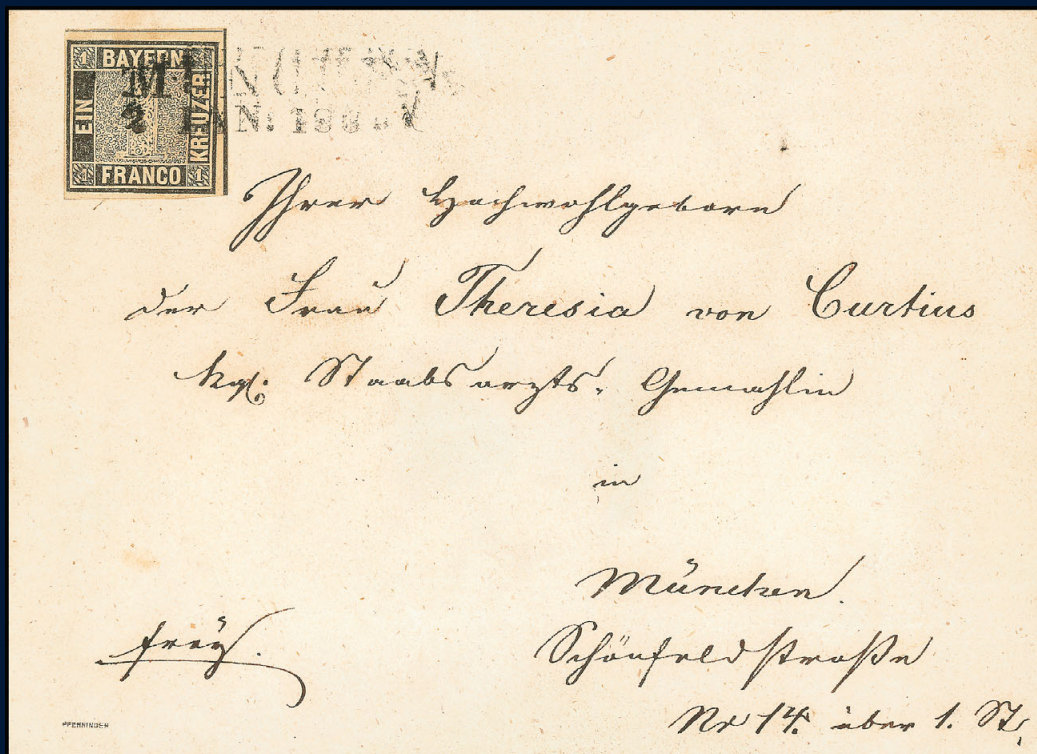 1 BAYERN
EIN
KREUZER
1 FRANCO 1
MÜNCHEN
2 IAN: 18
Ihrer Hochwohlgeborn
der Frau Theresia von Curtius
kgl. Staabsarzts-Gemahlin
in
München.
frey.
Schönfeldstraße
Nr 14. über 1. St.
PFENNINGER